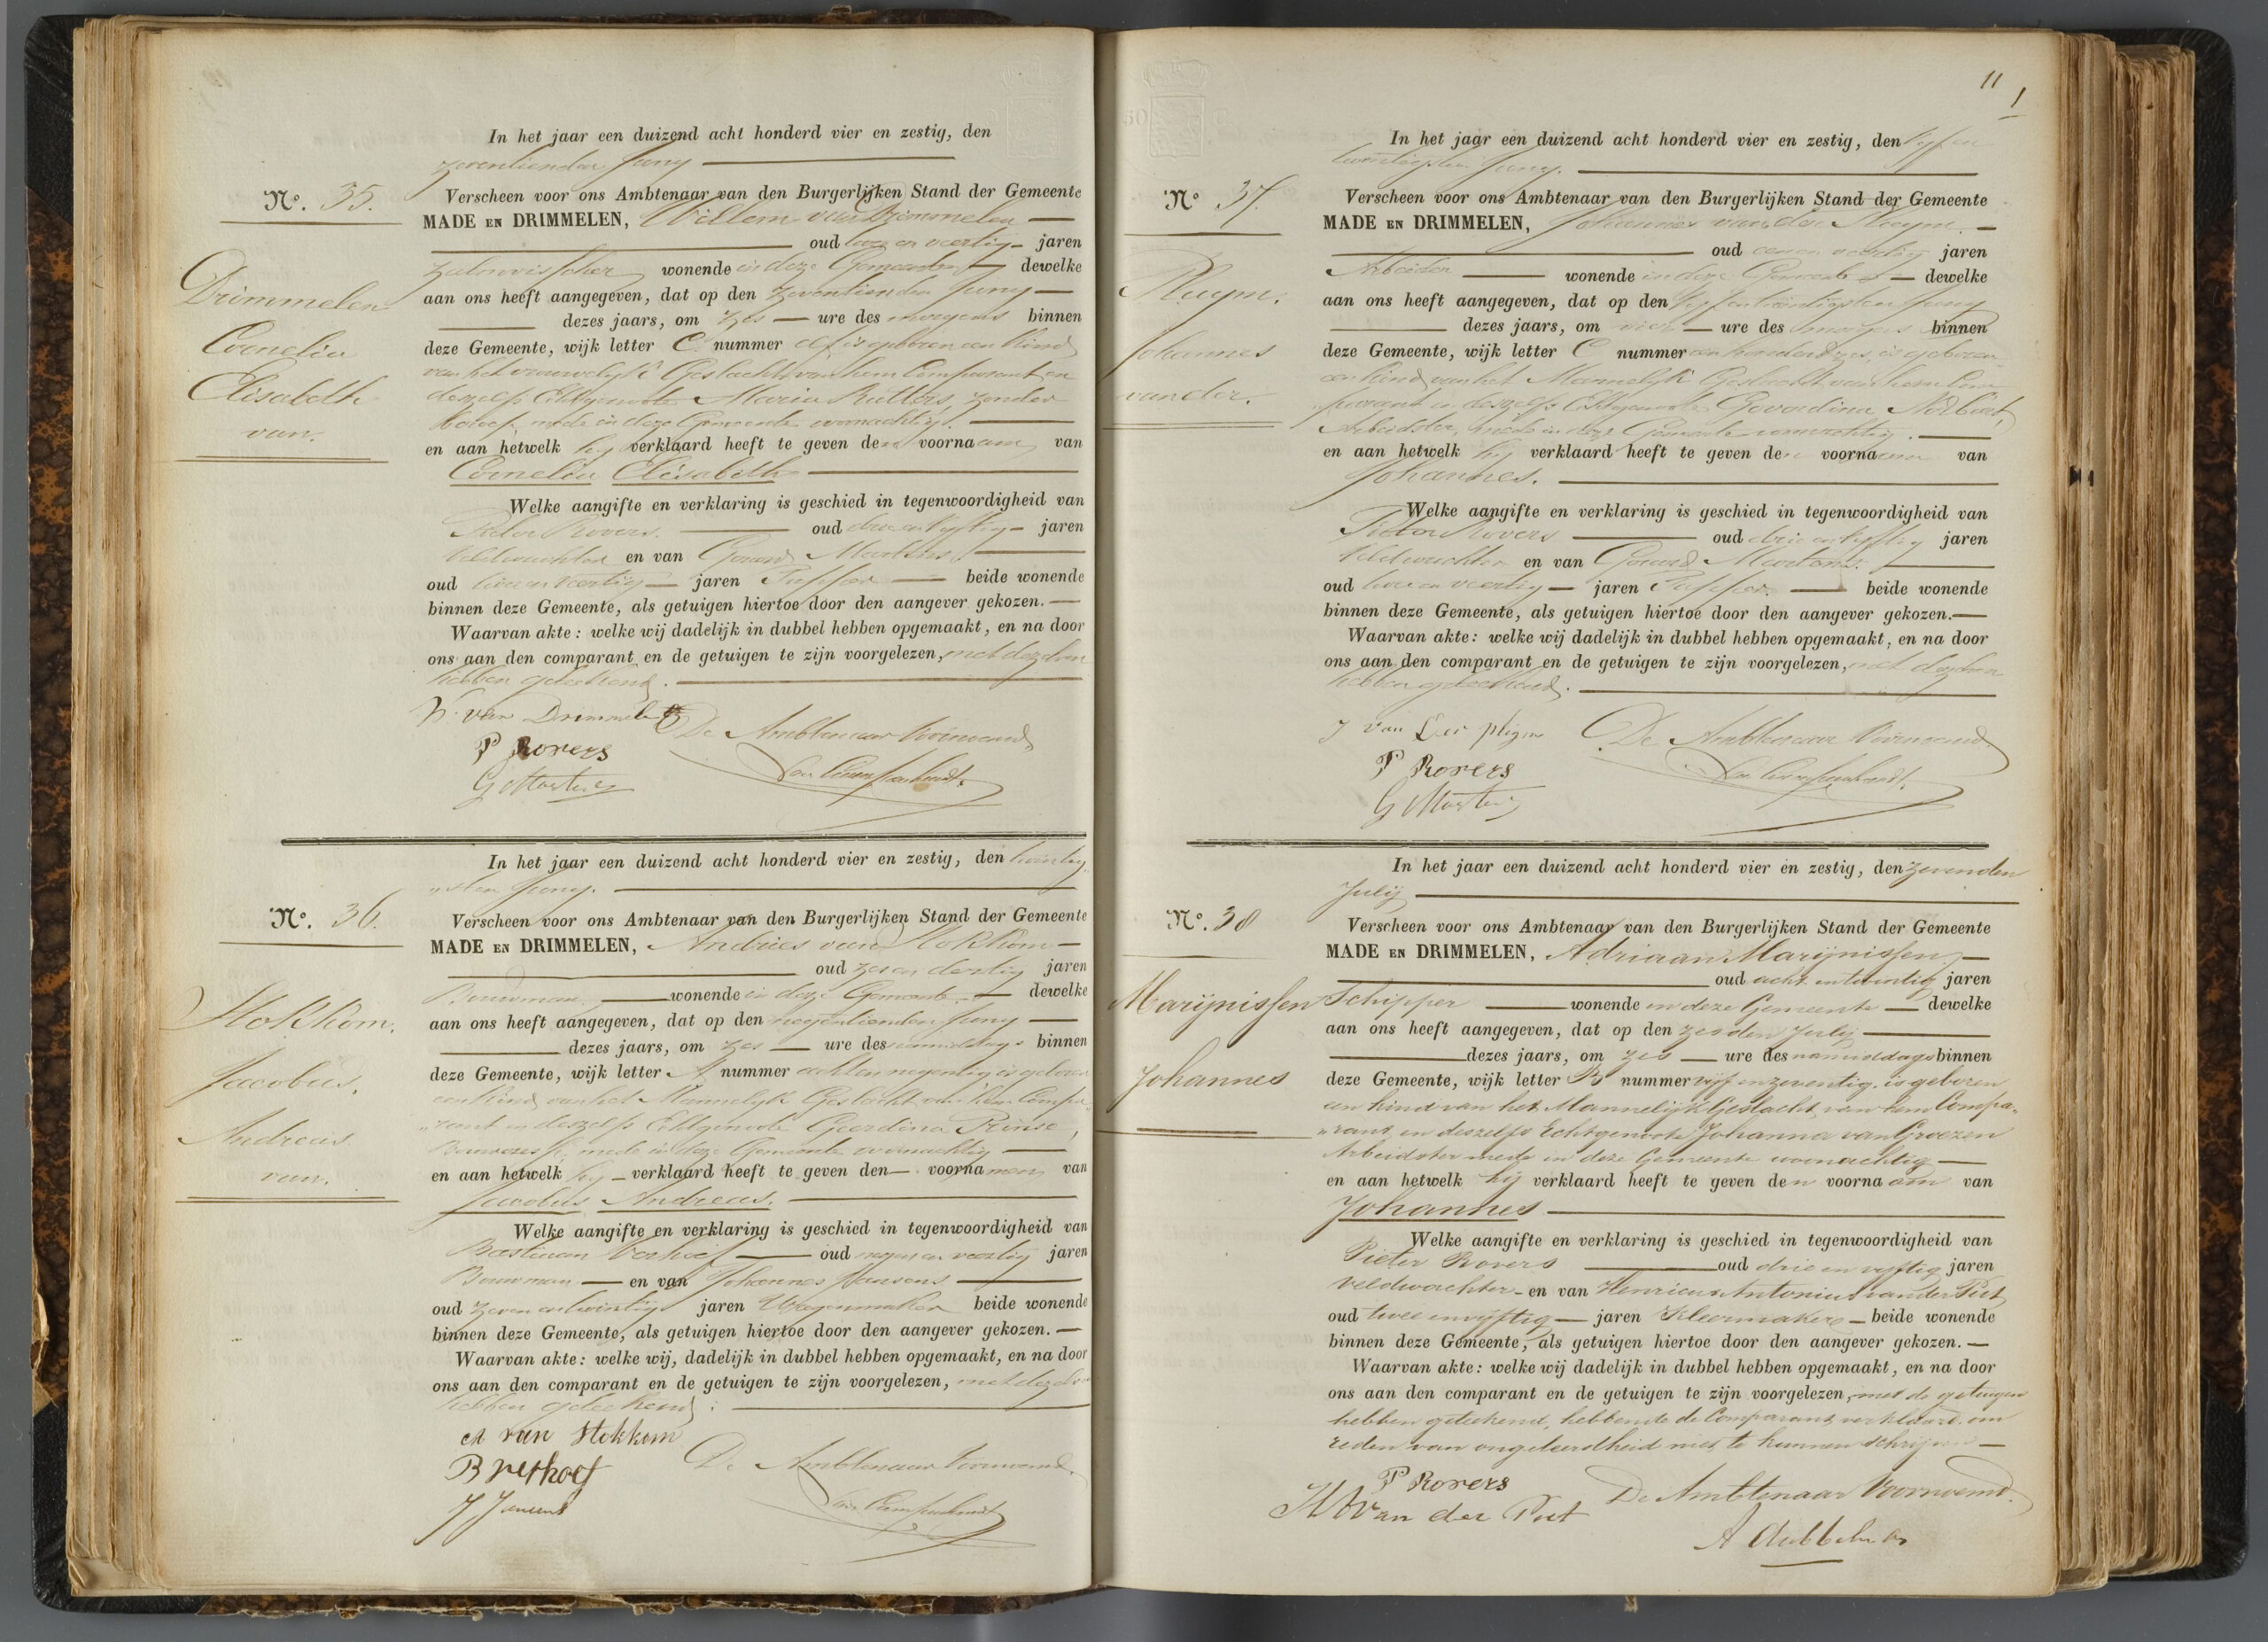 In het jaar een duizend acht honderd vier en zestig, den
zeventienden Juny
No. 35.
Verscheen voor ons Ambtenaar van den Burgerlijken Stand der Gemeente
MADE EN DRIMMELEN, Willem van Drimmelen
oud twee en veertig jaren
Zalmvisscher wonende in deze Gemeente dewelke
aan ons heeft aangegeven, dat op den zeventienden Juny
dezes jaars, om zes ure des morgens binnen
deze Gemeente, wijk letter C nummer elf is geboren een kind
van het vrouwelyk Geslacht, van hem Comparant en
deszelfs Echtgenoote Maria Rutters, zonder
beroep, mede in deze Gemeente woonachtig.
en aan hetwelk hy verklaard heeft te geven den voornaam van
Cornelia Elisabeth
Drimmelen
Cornelia
Elisabeth
van.
Welke aangifte en verklaring is geschied in tegenwoordigheid van
Pieter Rovers. oud drie en vyftig jaren
Veldwachter en van Gerard Martens
oud twee en veertig jaren Tapper beide wonende
binnen deze Gemeente, als getuigen hiertoe door den aangever gekozen.
Waarvan akte: welke wij dadelijk in dubbel hebben opgemaakt, en na door
ons aan den comparant en de getuigen te zijn voorgelezen, met dezelven
hebben geteekend.
W. van Drimmelen De Ambtenaar Voornoemd
P Rovers
G Martens
In het jaar een duizend acht honderd vier en zestig, den twintig
sten Juny.
No. 36.
Verscheen voor ons Ambtenaar van den Burgerlijken Stand der Gemeente
MADE EN DRIMMELEN, Andries van Stokkom
oud zes en dertig jaren
Bouwman wonende in deze Gemeente dewelke
aan ons heeft aangegeven, dat op den negentienden Juny
dezes jaars, om zes ure des namiddags binnen
deze Gemeente, wijk letter A nummer acht en negentig is geboren
een kind van het Mannelyk Geslacht van hem Compa
rant en deszelfs Echtgenoote Geerdina Prinse,
Bouwersse, mede in deze Gemeente woonachtig
en aan hetwelk hy verklaard heeft te geven den voornamen van
Jacobus Andreas.
Stokkom,
Jacobus,
Andreas
van.
Welke aangifte en verklaring is geschied in tegenwoordigheid van
Bastiaan Verhoef oud negen en veertig jaren
Bouwman en van Johannes Jansens
oud zeven en twintig jaren Wagenmaker beide wonende
binnen deze Gemeente, als getuigen hiertoe door den aangever gekozen.
Waarvan akte: welke wij, dadelijk in dubbel hebben opgemaakt, en na door
ons aan den comparant en de getuigen te zijn voorgelezen, met dezelven
hebben geteekend.
A van Stokkom
B Verhoef De Ambtenaar Voornoemd.
J Jansens
11
1
In het jaar een duizend acht honderd vier en zestig, den vyf en
twintigsten Juny.
No 37.
Verscheen voor ons Ambtenaar van den Burgerlijken Stand der Gemeente
MADE EN DRIMMELEN, Johannes van der Pluym
oud een en veertig jaren
Arbeider wonende in deze Gemeente dewelke
aan ons heeft aangegeven, dat op den vyf en twintigsten Juny
dezes jaars, om vier ure des morgens binnen
deze Gemeente, wijk letter C nummer een honderd zes, is geboren
een kind van het Mannelyk Geslacht van hem Com
parant en deszelfs Echtgenoote Goverdina Norbart,
Arbeidster, mede in deze Gemeente woonachtig.
en aan hetwelk hy verklaard heeft te geven den voornaam van
Johannes.
Pluym.
Johannes
van der.
Welke aangifte en verklaring is geschied in tegenwoordigheid van
Pieter Rovers oud drie en vyftig jaren
Veldwachter en van Gerard Martens.
oud twee en veertig jaren Tapper beide wonende
binnen deze Gemeente, als getuigen hiertoe door den aangever gekozen.
Waarvan akte: welke wij dadelijk in dubbel hebben opgemaakt, en na door
ons aan den comparant en de getuigen te zijn voorgelezen, met dezelven
hebben geteekend.
J van der Pluym De Ambtenaar Voornoemd
P Rovers
G Martens
In het jaar een duizend acht honderd vier en zestig, den zevenden
Julij
No. 38
Verscheen voor ons Ambtenaar van den Burgerlijken Stand der Gemeente
MADE EN DRIMMELEN, Adriaan Marijnissen
oud acht en twintig jaren
Schipper wonende in deze Gemeente dewelke
aan ons heeft aangegeven, dat op den zesden Julij
dezes jaars, om zes ure des namiddags binnen
deze Gemeente, wijk letter B nummer vijf en zeventig is geboren
een kind van het Mannelijk Geslacht, van hem Compa
rant, en deszelfs Echtgenoote Johanna van Groezen
Arbeidster mede in deze Gemeente woonachtig
en aan hetwelk hij verklaard heeft te geven den voornaam van
Johannes
Marijnissen
Johannes
Welke aangifte en verklaring is geschied in tegenwoordigheid van
Pieter Rovers oud drie en vyftig jaren
Veldwachter en van Henricus Antonius van der Put
oud twee en vijftig jaren Kleermaker beide wonende
binnen deze Gemeente, als getuigen hiertoe door den aangever gekozen.
Waarvan akte: welke wij dadelijk in dubbel hebben opgemaakt, en na door
ons aan den comparant en de getuigen te zijn voorgelezen, met de getuigen
hebben geteekend, hebbende de Comparant verklaard om
reden van ongeleerdheid niet te kunnen schrijven
P Rovers De Ambtenaar Voornoemd.
H A van der Put